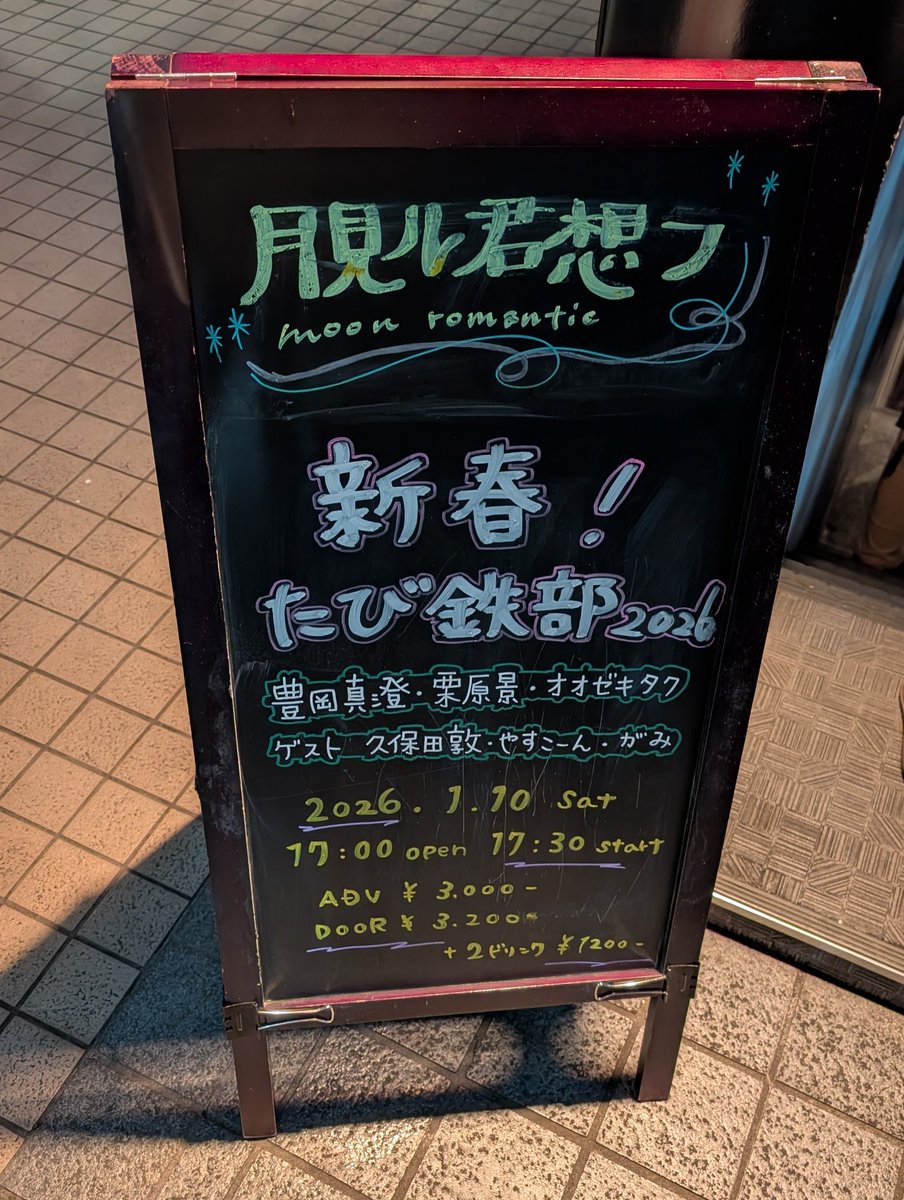 月見ル君想フ
moon romantic
新春！
たび鉄部2026
豊岡真澄・栗原景・オオゼキタク
ゲスト 久保田敦・やすこーん・がみ
2026.1.10 sat
17:00 open 17:30 start
ADV ¥3.000-
DOOR ¥3.200-
+2ドリンク ¥1200-